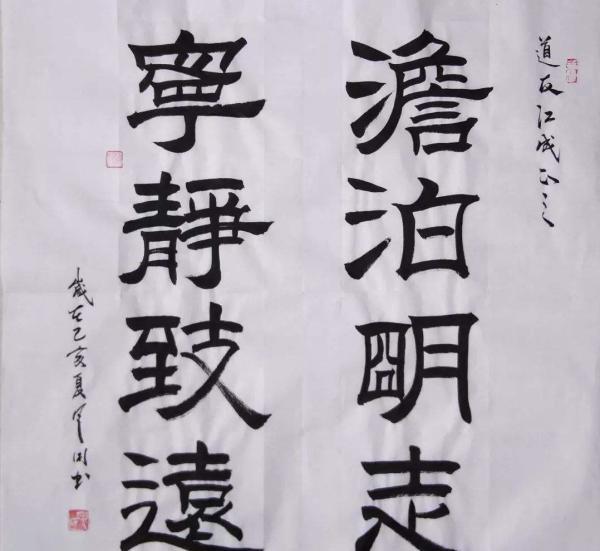 道友江成正之
澹泊明志
寧靜致遠
歲在乙亥夏書